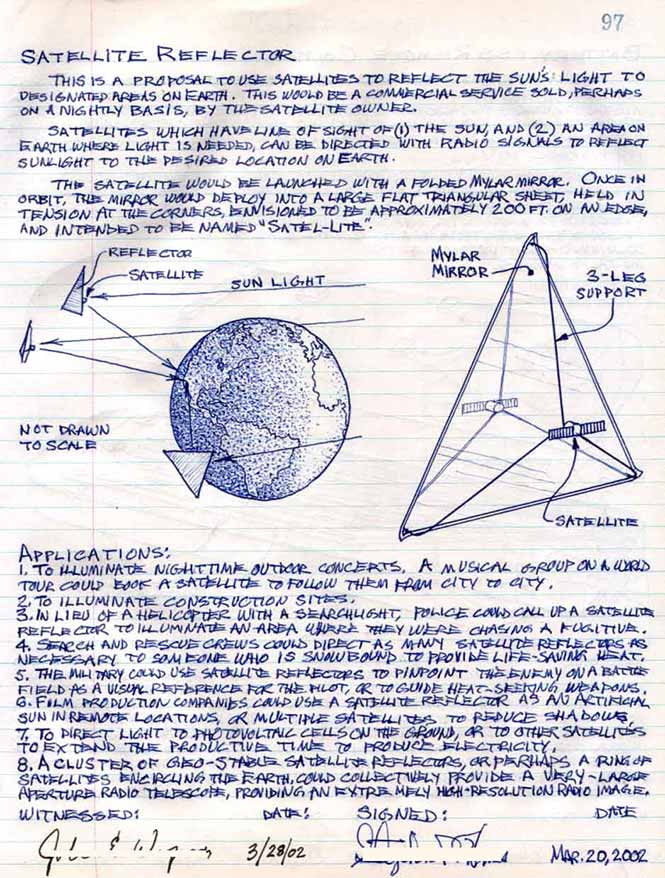 97
SATELLITE REFLECTOR
THIS IS A PROPOSAL TO USE SATELLITES TO REFLECT THE SUN'S LIGHT TO
DESIGNATED AREAS ON EARTH. THIS WOULD BE A COMMERCIAL SERVICE SOLD, PERHAPS
ON A NIGHTLY BASIS, BY THE SATELLITE OWNER.
SATELLITES WHICH HAVE LINE OF SIGHT OF (1) THE SUN, AND (2) AN AREA ON
EARTH WHERE LIGHT IS NEEDED, CAN BE DIRECTED WITH RADIO SIGNALS TO REFLECT
SUNLIGHT TO THE DESIRED LOCATION ON EARTH.
THE SATELLITE WOULD BE LAUNCHED WITH A FOLDED MYLAR MIRROR. ONCE IN
ORBIT, THE MIRROR WOULD DEPLOY INTO A LARGE FLAT TRIANGULAR SHEET, HELD IN
TENSION AT THE CORNERS, ENVISIONED TO BE APPROXIMATELY 200 FT. ON AN EDGE,
AND INTENDED TO BE NAMED "SATEL-LITE".
REFLECTOR
SATELLITE
SUN LIGHT
NOT DRAWN
TO SCALE
MYLAR
MIRROR
3-LEG
SUPPORT
SATELLITE
APPLICATIONS:
1. TO ILLUMINATE NIGHTTIME OUTDOOR CONCERTS. A MUSICAL GROUP ON A WORLD
TOUR COULD BOOK A SATELLITE TO FOLLOW THEM FROM CITY TO CITY.
2. TO ILLUMINATE CONSTRUCTION SITES.
3. IN LIEU OF A HELICOPTER WITH A SEARCHLIGHT, POLICE COULD CALL UP A SATELLITE
REFLECTOR TO ILLUMINATE AN AREA WHERE THEY WERE CHASING A FUGITIVE.
4. SEARCH AND RESCUE CREWS COULD DIRECT AS MANY SATELLITE REFLECTORS AS
NECESSARY TO SOMEONE WHO IS SNOWBOUND TO PROVIDE LIFE-SAVING HEAT.
5. THE MILITARY COULD USE SATELLITE REFLECTORS TO PINPOINT THE ENEMY ON A BATTLE
FIELD AS A VISUAL REFERENCE FOR THE PILOT, OR TO GUIDE HEAT-SEEKING WEAPONS.
6. FILM PRODUCTION COMPANIES COULD USE A SATELLITE REFLECTOR AS AN ARTIFICIAL
SUN IN REMOTE LOCATIONS, OR MULTIPLE SATELLITES TO REDUCE SHADOWS.
7. TO DIRECT LIGHT TO PHOTOVOLTAIC CELLS ON THE GROUND, OR TO OTHER SATELLITES
TO EXTEND THE PRODUCTIVE TIME TO PRODUCE ELECTRICITY.
8. A CLUSTER OF GEO-STABLE SATELLITE REFLECTORS, OR PERHAPS A RING OF
SATELLITES ENCIRCLING THE EARTH, COULD COLLECTIVELY PROVIDE A VERY-LARGE
APERTURE RADIO TELESCOPE, PROVIDING AN EXTREMELY HIGH-RESOLUTION RADIO IMAGE.
WITNESSED: DATE: SIGNED: DATE
3/28/02 MAR. 20, 2002